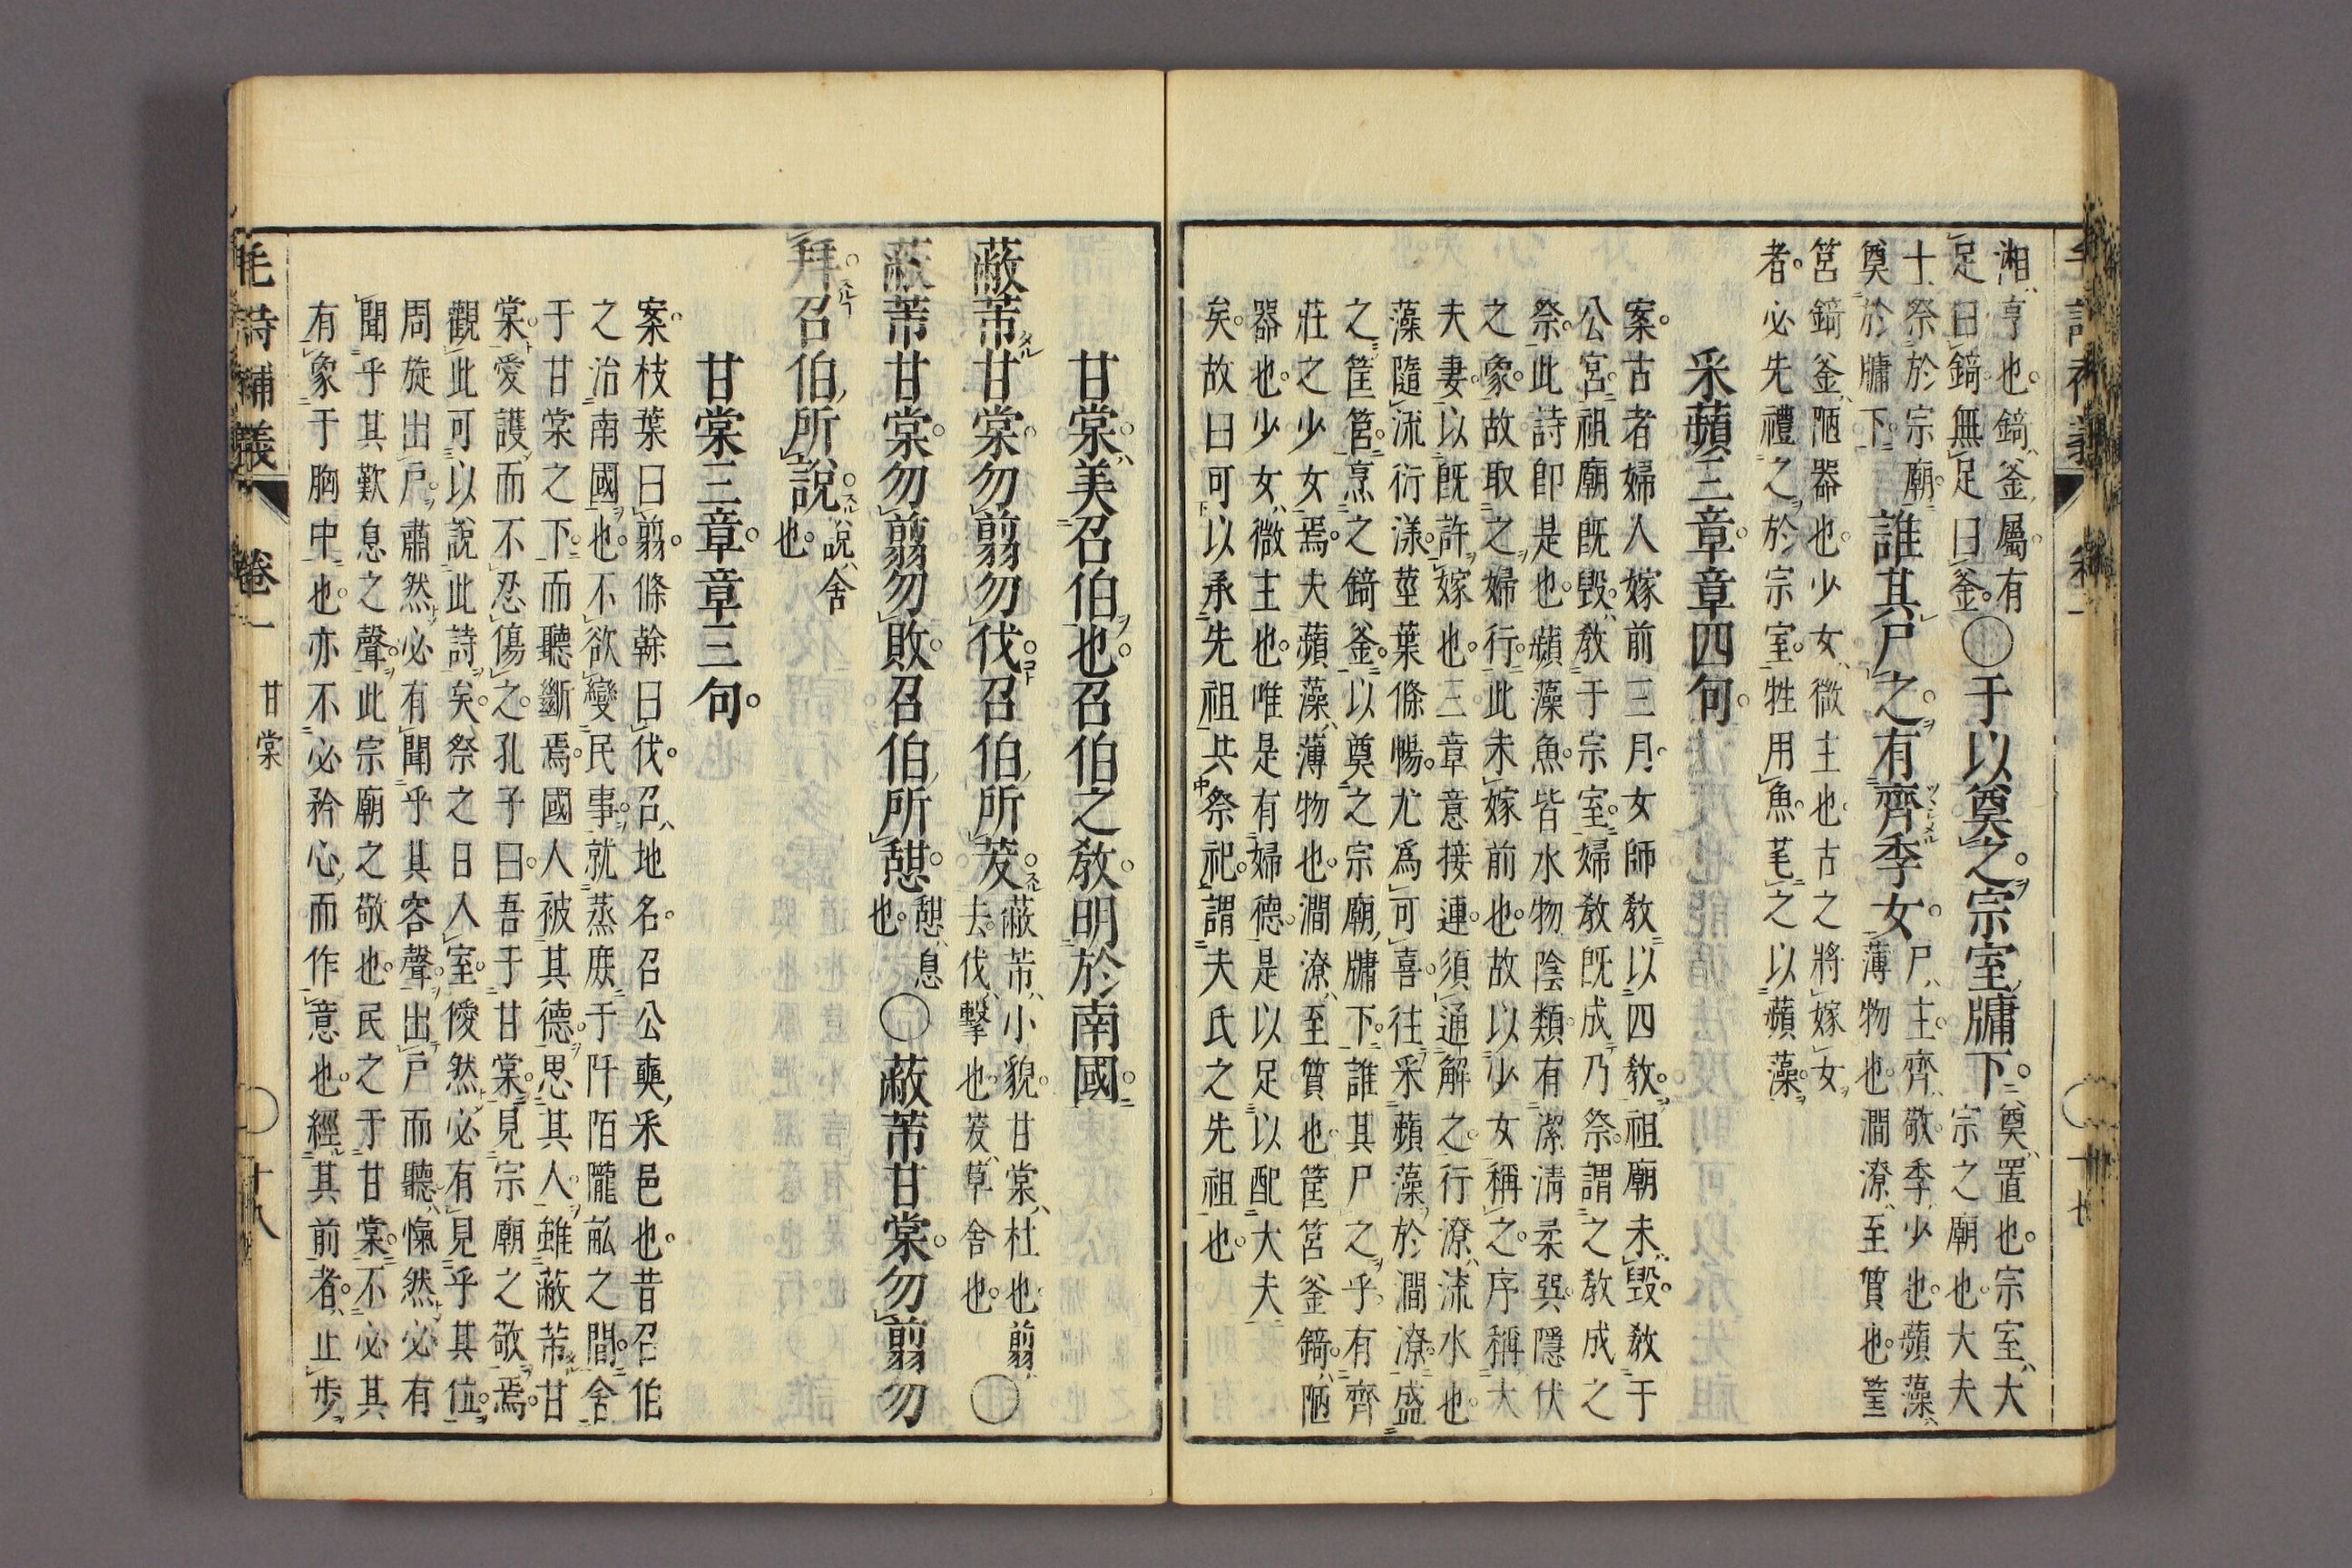 湘亨也錡釜屬有
足曰錡無足曰釜○于以奠之宗室牖下奠置也宗室大
宗之廟也大夫
士祭於宗廟
奠於牖下誰其尸之有齊季女尸主齊敬季少也蘋藻
薄物也澗潦至質也筐
筥錡釜陋器也少女微主也古之將嫁女
者必先禮之於宗室牲用魚芼之以蘋藻
采蘋三章章四句
案古者婦人嫁前三月女師教以四教祖廟未毀教于
公宮祖廟既毀教于宗室婦教既成乃祭謂之教成之
祭此詩卽是也蘋藻魚皆水物陰類有潔淸柔巽隱伏
之象故取之婦行此未嫁前也故以少女稱之序稱大
夫妻以既許嫁也三章意接連須通解之行潦流水也
藻隨流衍漾莖葉條暢尤爲可喜往采蘋藻於澗潦盛
之筐筥烹之錡釜以奠之宗廟牖下誰其尸之乎有齊
莊之少女焉夫蘋藻薄物也澗潦至質也筐筥釜錡陋
器也少女微主也唯是有婦德是以足以配大夫
矣故曰可以承先祖共祭祀謂夫氏之先祖也
甘棠美召伯也召伯之教明於南國
蔽芾甘棠勿翦勿伐召伯所茇蔽芾小貌甘棠杜也翦
去伐擊也茇草舍也○
蔽芾甘棠勿翦勿敗召伯所憩憩息
也○蔽芾甘棠勿翦勿
拜召伯所說說舍
也
甘棠三章章三句
案枝葉曰翦條幹曰伐召地名召公奭采邑也昔召伯
之治南國也不欲變民事就蒸庶于阡陌隴畝之間舍
于甘棠之下而聽斷焉國人被其德思其人雖蔽芾甘
棠愛護而不忍傷之孔子曰吾于甘棠見宗廟之敬焉
觀此可以說此詩矣祭之日入室僾然必有見乎其位
周旋出戶肅然必有聞乎其容聲出戶而聽愾然必有
聞乎其歎息之聲此宗廟之敬也民之于甘棠不必其
有象于胸中也亦不必矜心而作意也經其前者止步
毛詩補義 卷一 甘棠 ○ 十八